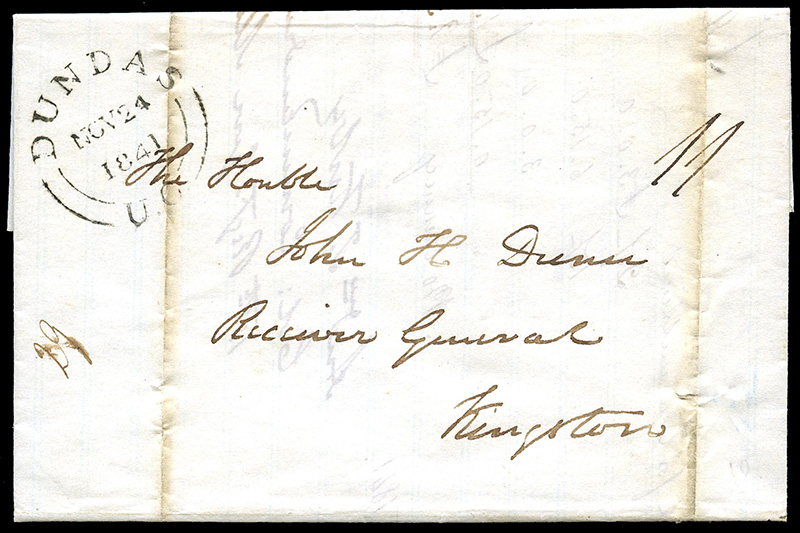 DUNDAS
NOV 24
1841
U.C
11
The Honble
John H Dunn
Receiver General
Kingston